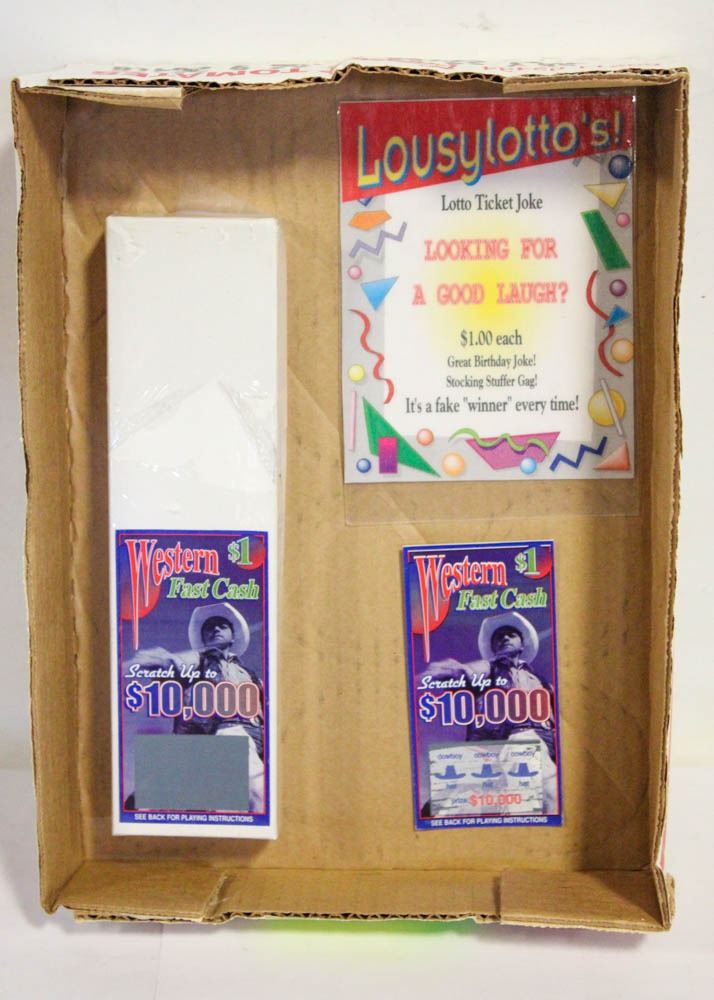 TOMATOES
Lousylotto's!
Lotto Ticket Joke
LOOKING FOR
A GOOD LAUGH?
$1.00 each
Great Birthday Joke!
Stocking Stuffer Gag!
It's a fake "winner" every time!
Western $1
Fast Cash
Scratch Up to
$10,000
SEE BACK FOR PLAYING INSTRUCTIONS
Western $1
Fast Cash
Scratch Up to
$10,000
cowboy cowboy cowboy
hat hat hat
prize $10,000
SEE BACK FOR PLAYING INSTRUCTIONS